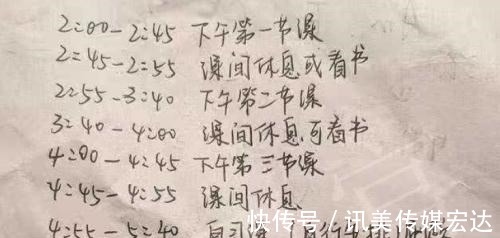 2:00-2:45 下午第一节课
2:45-2:55 课间休息或看书
2:55-3:40 下午第二节课
3:40-4:00 课间休息可看书
4:00-4:45 下午第三节课
4:45-4:55 课间休息
4:55-5:40 自习课
快传号/讯美传媒宏达